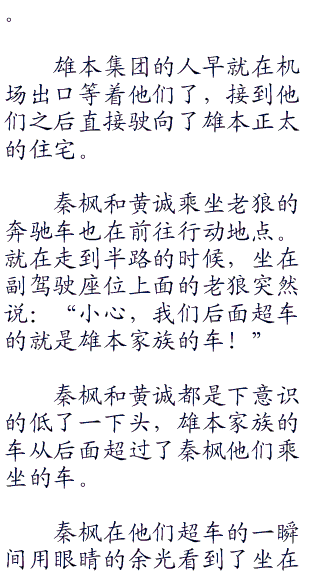 。
雄本集团的人早就在机
场出口等着他们了，接到他
们之后直接驶向了雄本正太
的住宅。
秦枫和黄诚乘坐老狼的
奔驰车也在前往行动地点。
就在走到半路的时候，坐在
副驾驶座位上面的老狼突然
说：“小心，我们后面超车
的就是雄本家族的车！”
秦枫和黄诚都是下意识
的低了一下头，雄本家族的
车从后面超过了秦枫他们乘
坐的车。
秦枫在他们超车的一瞬
间用眼睛的余光看到了坐在